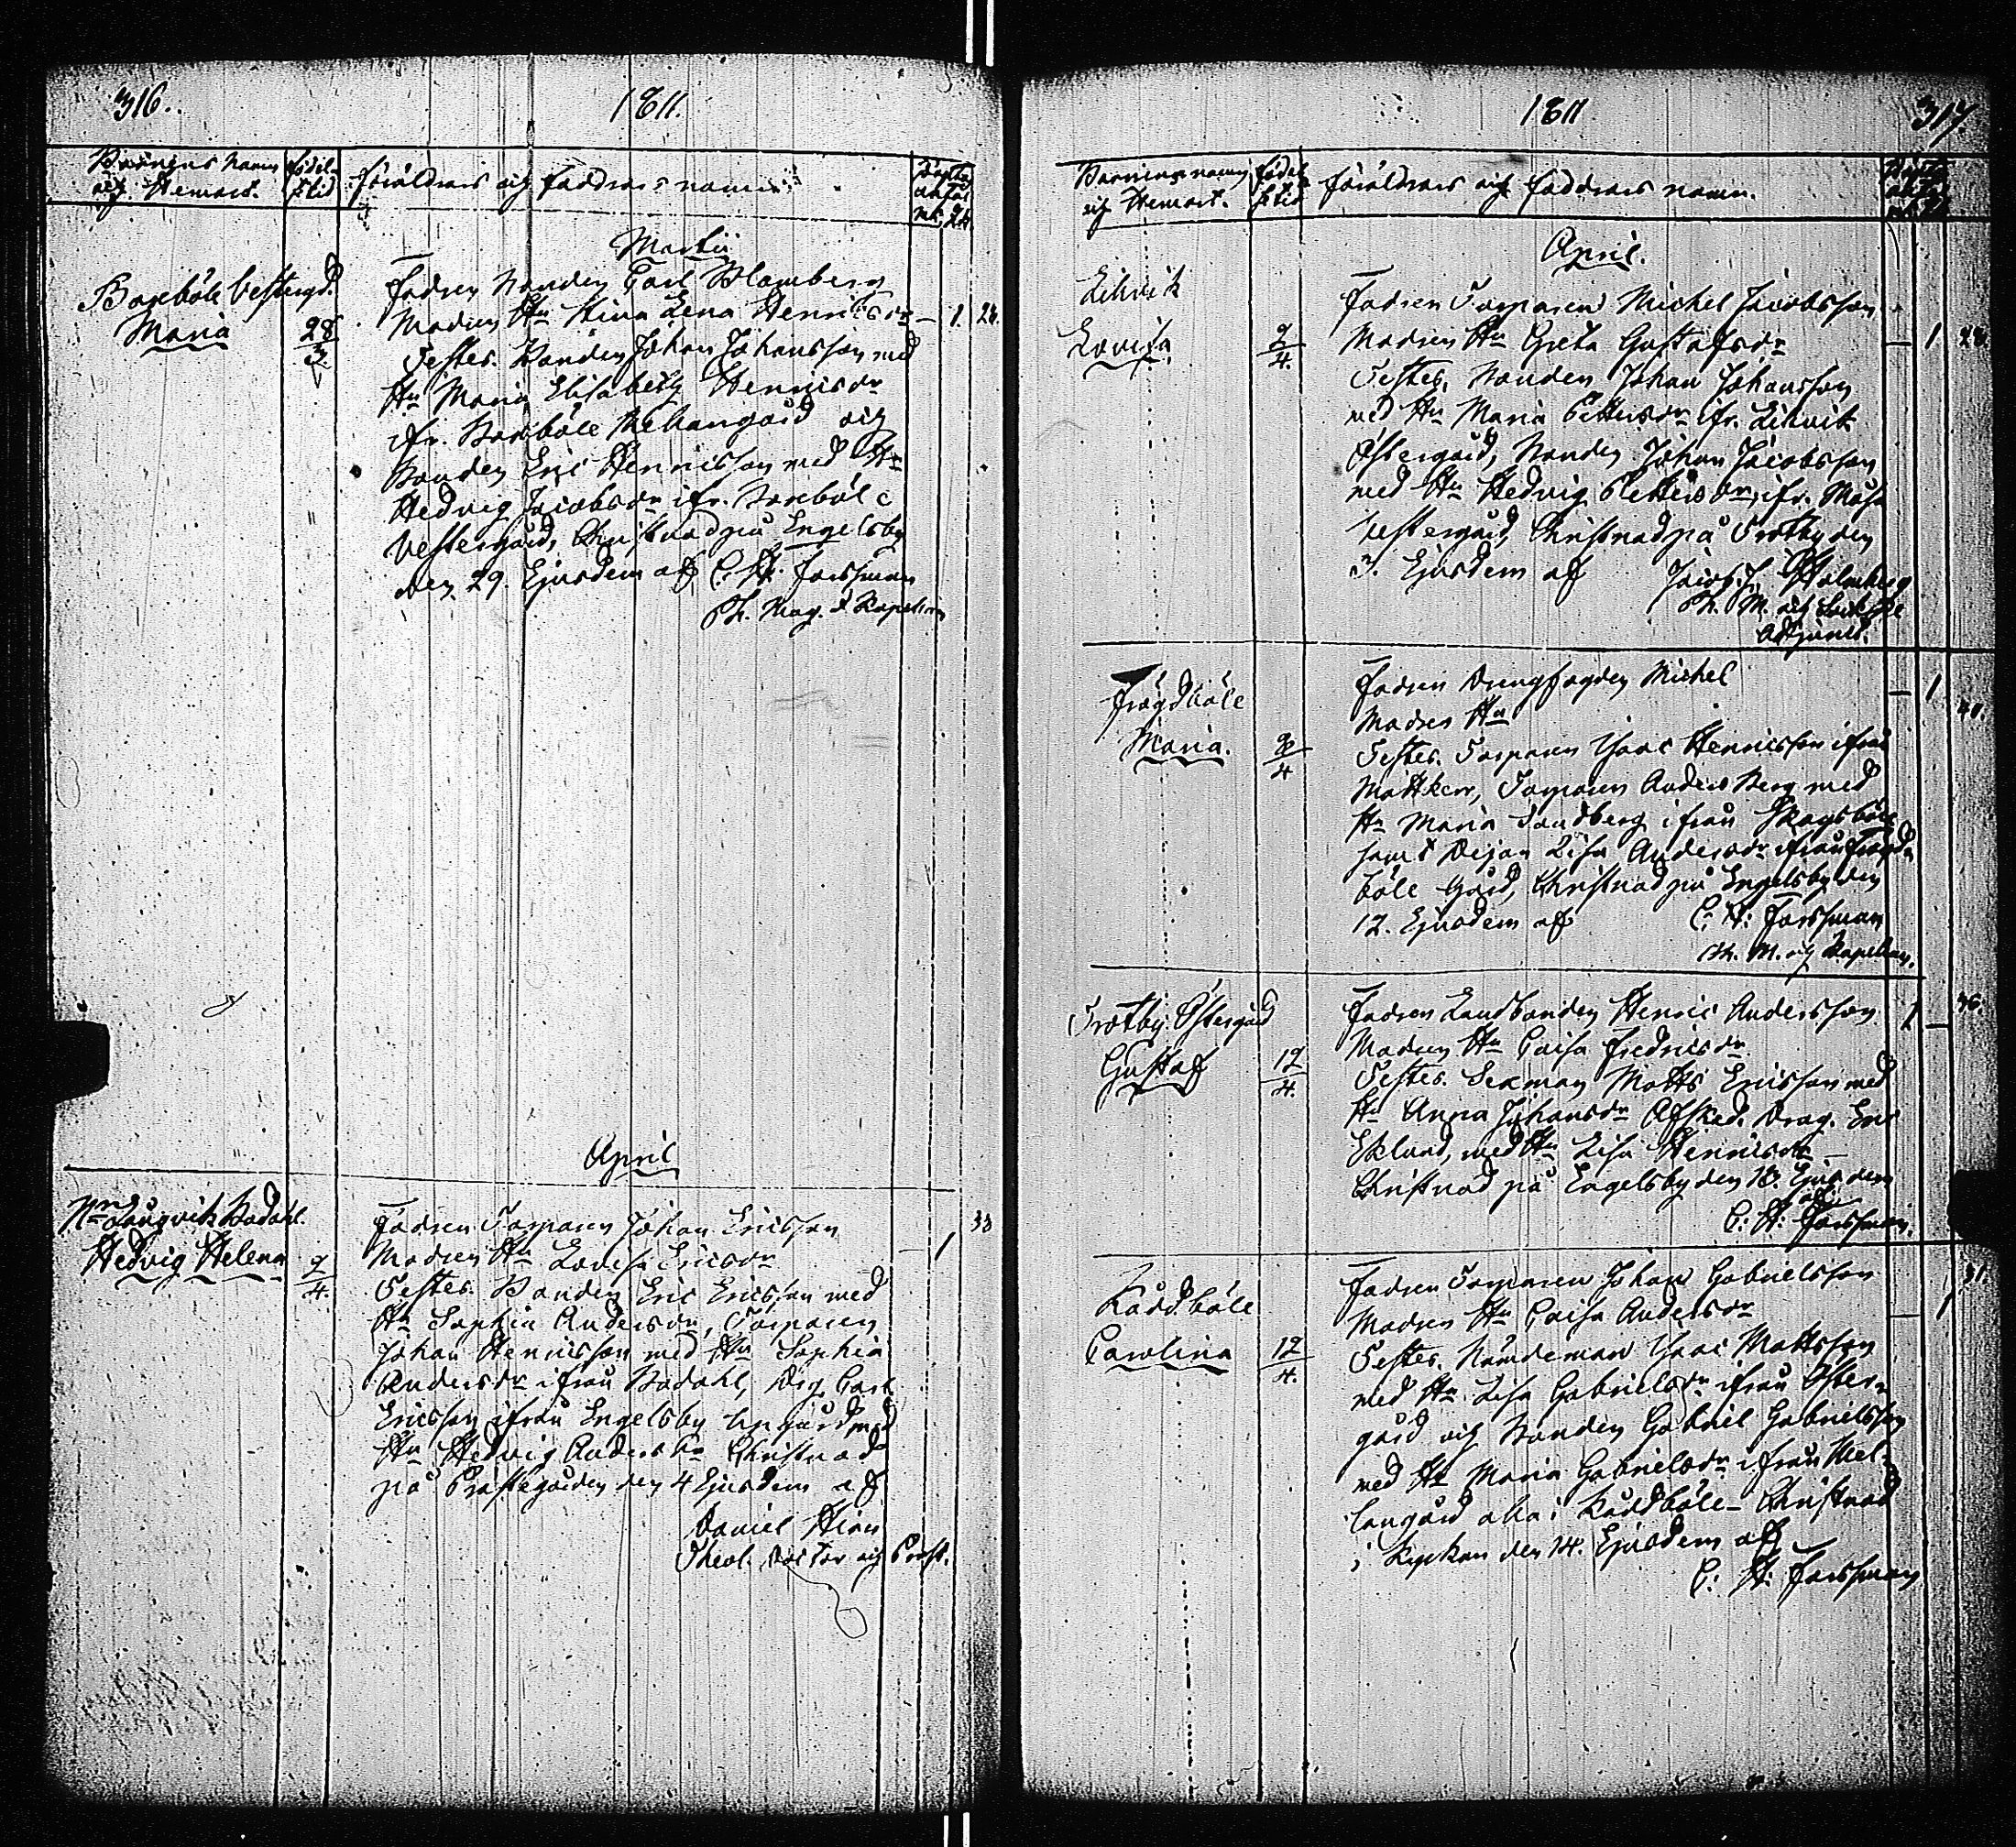 316.
1811.
Barnens Namn
och Hemort.
födel-
se tid
föräldrars och faddrars namn.
Martii
Boxböle Vestergd.
Maria
28
3.
Fadren Bonden Carl Blomberg
Modren Hu Stina Lena Henricsdr
— 1. 24.
Testes. Bonden Johan Johansson med
Hu Maria Elisabeth Henricsdr
ifr. Boxböle Mellangård och
Bonden Eric Henricsson med Hu
Hedvig Jacobsdr ifr. Boxböle
Vestergård, Christnad på Engelsby
den 29. Ejusdem af C. H. Forssman
Ph. Mag. & Kapellan
April
Nr Långvik Badahl.
Hedvig Helena
2
4.
Fadren Torparen Johan Ericsson
Modren Hu Lovisa Ericsdr
— 1 33
Testes. Bonden Eric Ericsson med
Hu Sophia Andersdr, Torparen
Johan Henricsson med Hu Sophia
Andersdr ifrån Badahl, Drg Carl
Ericsson ifrån Engelsby med
Hu Hedvig Andersdr Christnad
på Prästegården den 4 Ejusdem af
Daniel Hirn
Theol. Doctor och Prost.
1811
317.
Barnens namn
och Hemort.
födel-
se tid
föräldrars och faddrars namn.
April.
Likvik
Lovisa
2
4.
Fadren Torparen Michel Jacobsson
Modren Hu Greta Gustafsdr
— 1 28.
Testes. Bonden Johan Johansson
med Hu Maria Pettersdr ifr. Likvik
Östergård, Bonden Johan Jacobsson
med Hu Hedvig Pettersdr, ifr. Måsa
Vestergård, Christnad på Trotby den
3. Ejusdem af Jacob J. Holmberg
Ph. M. och Sockne
Adjunct.
Frögdböle
Maria.
4
Fadren Drengfogden Michel
— 1
Modren Hu
40.
Testes. Torparen Isaac Henricsson ifrån
Mattkerr, Torparen Anders Berg med
Hu Maria Sandberg ifrån Skogsböle
samt Pigan Lisa Andersdr ifrån Frögd-
böle Gård, Christnad på Engelsby den
12. Ejusdem af C. H. Forssman
Ph. M. och Kapellan.
Trotby Östergård
Gustaf
12
4.
Fadren Landbonden Henric Andersson
1 — 36.
Modren Hu Caisa Fredricsdr
Testes. Sexman Matts Ericsson med
Hu Anna Johansdr Afsked. Drag. Eric
Eklund, med Hu Lisa Henricsdr —
Christnad på Engelsby den 18. Ejusdem
af
C: H: Forssman.
Råddböle
Carolina
12
4.
Fadren Torparen Johan Gabrielsson
Modren Hu Caisa Andersdr
— 1 31.
Testes. Nämdeman Isaac Mattsson
med Hu Lisa Gabrielsdr ifrån Öster-
gård och Bonden Gabriel Gabrielsson
med Hu Maria Gabrielsdr ifrån Mel-
langård alla i Råddböle — Christnad
i Kyrkan den 14. Ejusdem af
C: H: Forssman